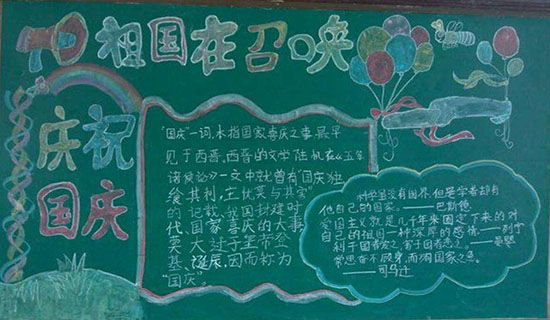 祖国在召唤
庆祝
国庆
"国庆"一词,本指国家喜庆之事,最早
见于西晋,西晋的文学陆机在《五等
诸侯论》一文中就曾有"国庆独
飨其利,主忧莫与其害"
的记载,我国封建时
代、国家喜庆的大事
莫大过于皇帝登
基、诞辰,因而称为
"国庆"。
科学虽没有国界,但是学者却有
他自己的国家。——巴斯德
爱国主义就是几千年来固定下来的对
自己的祖国一种深厚的感情。——列宁
利于国者爱之,害于国者恶之。——晏婴
常思奋不顾身,而殉国家之急。
——司马迁